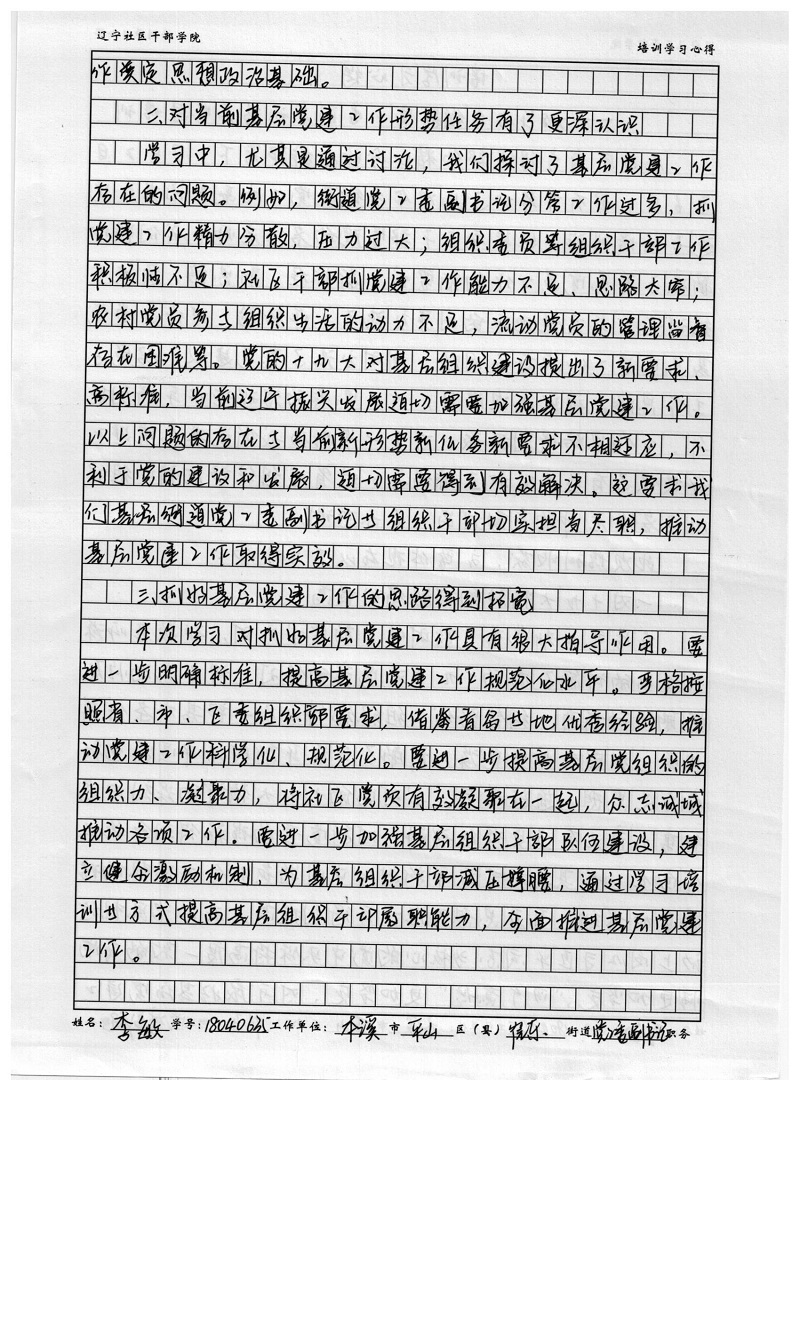 辽宁社区干部学院 培训学习心得
作奠定思想政治基础。
二、对当前基层党建工作形势任务有了更深认识
学习中，尤其是通过讨论，我们探讨了基层党建工作
存在的问题。例如，街道党工委副书记分管工作过多，抓
党建工作精力分散，压力过大；组织委员等组织干部工作
积极性不足；社区干部抓党建工作能力不足、思路太窄；
农村党员参与组织生活的动力不足，流动党员的管理监督
存在困难等。党的十九大对基层组织建设提出了新要求、
高标准，当前辽宁振兴发展迫切需要加强基层党建工作。
以上问题的存在与当前新形势新任务新要求不相适应，不
利于党的建设和发展，迫切需要得到有效解决。这要求我
们基层街道党工委副书记节组织干部切实担当尽职，推动
基层党建工作取得实效。
三、抓好基层党建工作的思路得到拓宽
本次学习对抓好基层党建工作具有很大指导作用。要
进一步明确标准，提高基层党建工作规范化水平。严格按
照省、市、区委组织部要求，借鉴省各地优秀经验，推
动党建工作科学化、规范化。要进一步提高基层党组织的
组织力、凝聚力，将社区党员有效凝聚在一起，众志成城
推动各项工作。要进一步加强基层组织干部队伍建设，建
立健全激励机制，为基层组织干部减压撑腰，通过学习培
训等方式提高基层组织干部履职能力，全面推进基层党建
工作。
姓名：李敏 学号：18040635 工作单位：本溪市平山区（县） 街道党工委副书记职务